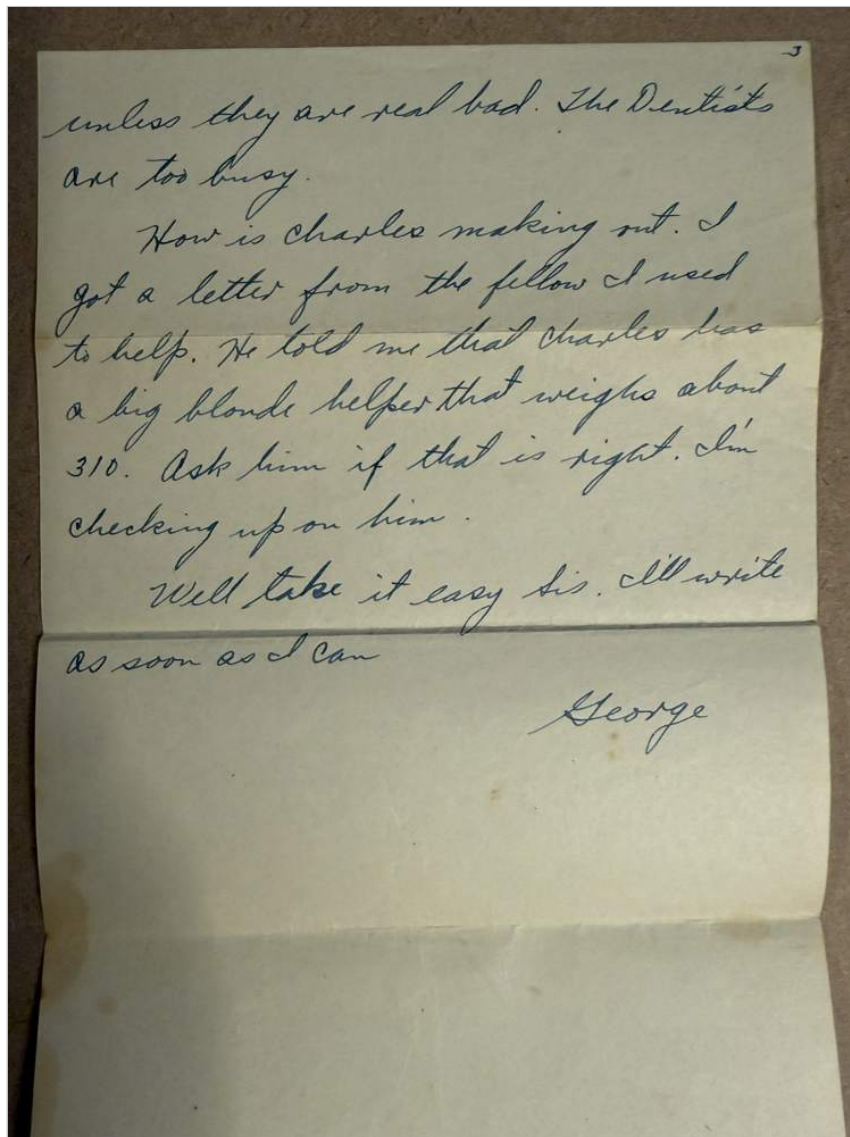 3
unless they are real bad. The Dentists
are too busy.
How is Charles making out. I
got a letter from the fellow I used
to help. He told me that Charles has
a big blonde helper that weighs about
310. Ask him if that is right. I'm
checking up on him.
Well take it easy Sis. I'll write
as soon as I can
George